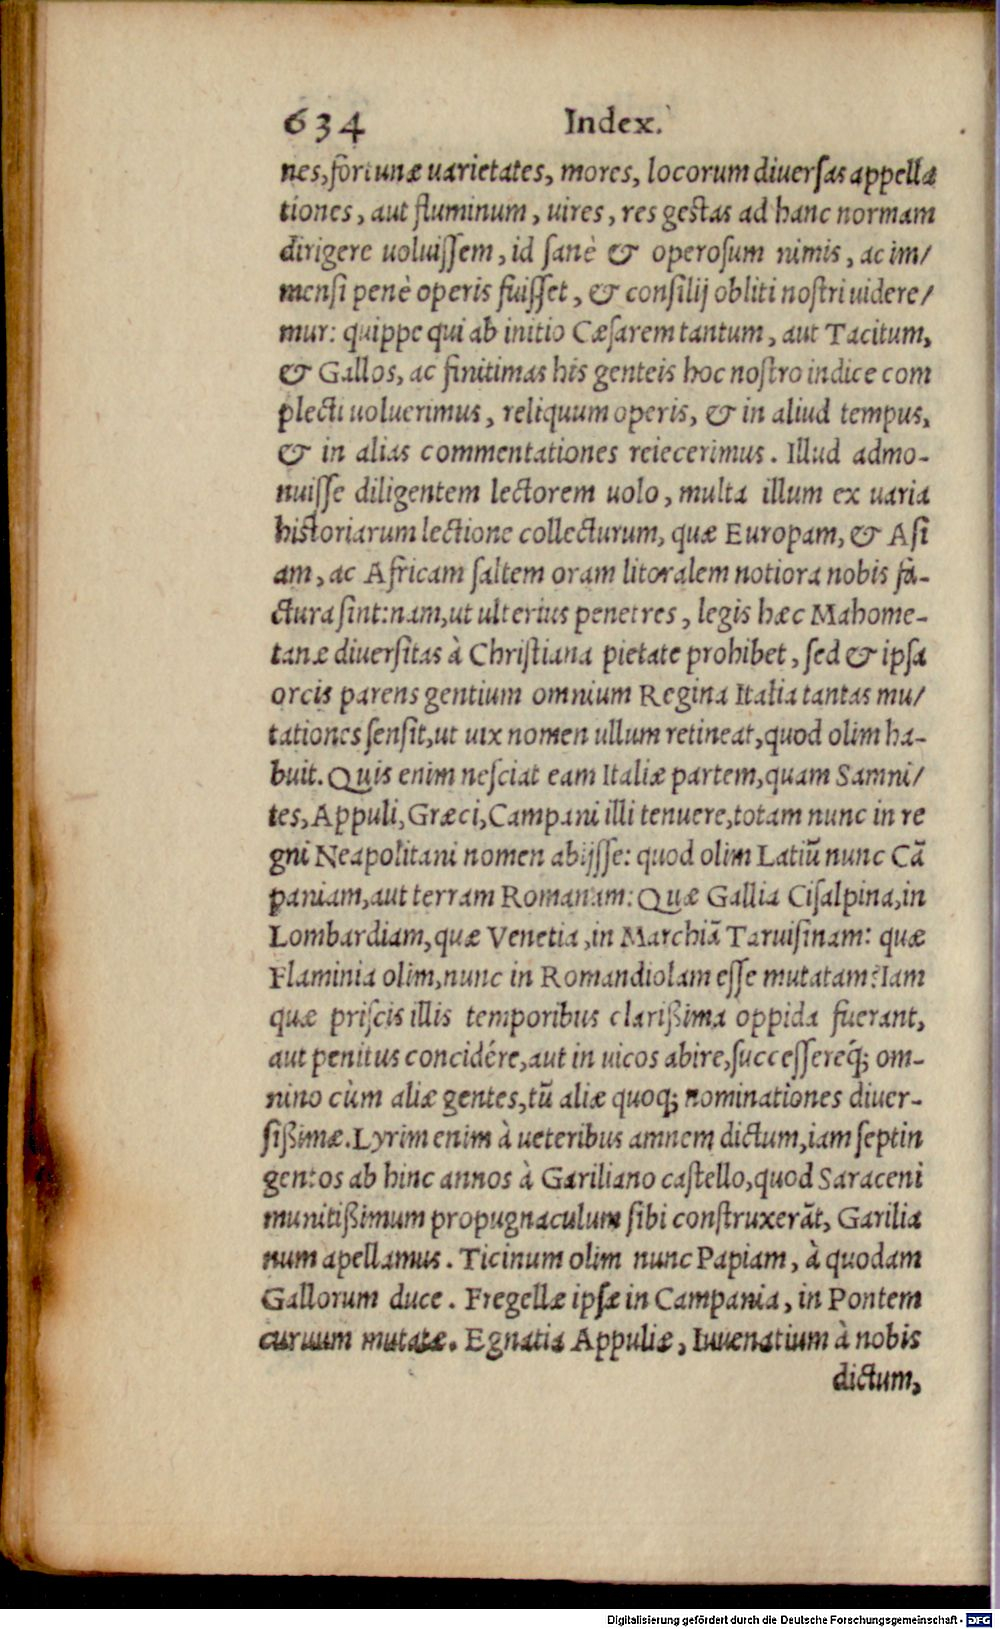 634 Index.
nes, fortunæ uarietates, mores, locorum diuersas appella
tiones, aut fluminum, uires, res gestas ad hanc normam
dirigere uoluissem, id sanè & operosum nimis, ac im/
mensi penè operis fuisset, & consilij obliti nostri uidere/
mur: quippe qui ab initio Cæsarem tantum, aut Tacitum,
& Gallos, ac finitimas his genteis hoc nostro indice com
plecti uoluerimus, reliquum operis, & in aliud tempus,
& in alias commentationes reiecerimus. Illud admo-
nuisse diligentem lectorem uolo, multa illum ex uaria
historiarum lectione collecturum, quæ Europam, & Asi
am, ac Africam saltem oram litoralem notiora nobis fa-
ctura sint: nam, ut ulterius penetres, legis hæc Mahome-
tanæ diuersitas à Christiana pietate prohibet, sed & ipsa
orcis parens gentium omnium Regina Italia tantas mu/
tationes sensit, ut uix nomen ullum retineat, quod olim ha-
buit. Quis enim nesciat eam Italiæ partem, quam Samni/
tes, Appuli, Græci, Campani illi tenuere, totam nunc in re
gni Neapolitani nomen abijsse: quod olim Latiũ nunc Cã
paniam, aut terram Romanam: Quæ Gallia Cisalpina, in
Lombardiam, quæ Venetia, in Marchiã Taruisinam: quæ
Flaminia olim, nunc in Romandiolam esse mutatam? Iam
quæ priscis illis temporibus clarißima oppida fuerant,
aut penitus concidére, aut in uicos abire, successereq́; om-
nino cùm aliæ gentes, tũ aliæ quoq; nominationes diuer-
sißimæ. Lyrim enim à ueteribus amnem dictum, iam septin
gentos ab hinc annos à Gariliano castello, quod Saraceni
munitißimum propugnaculum sibi construxerãt, Garilia
num apellamus. Ticinum olim nunc Papiam, à quodam
Gallorum duce. Fregellæ ipsæ in Campania, in Pontem
curuum mutatæ. Egnatia Appuliæ, Iuuenatium à nobis
dictum,
Digitalisierung gefördert durch die Deutsche Forschungsgemeinschaft - DFG